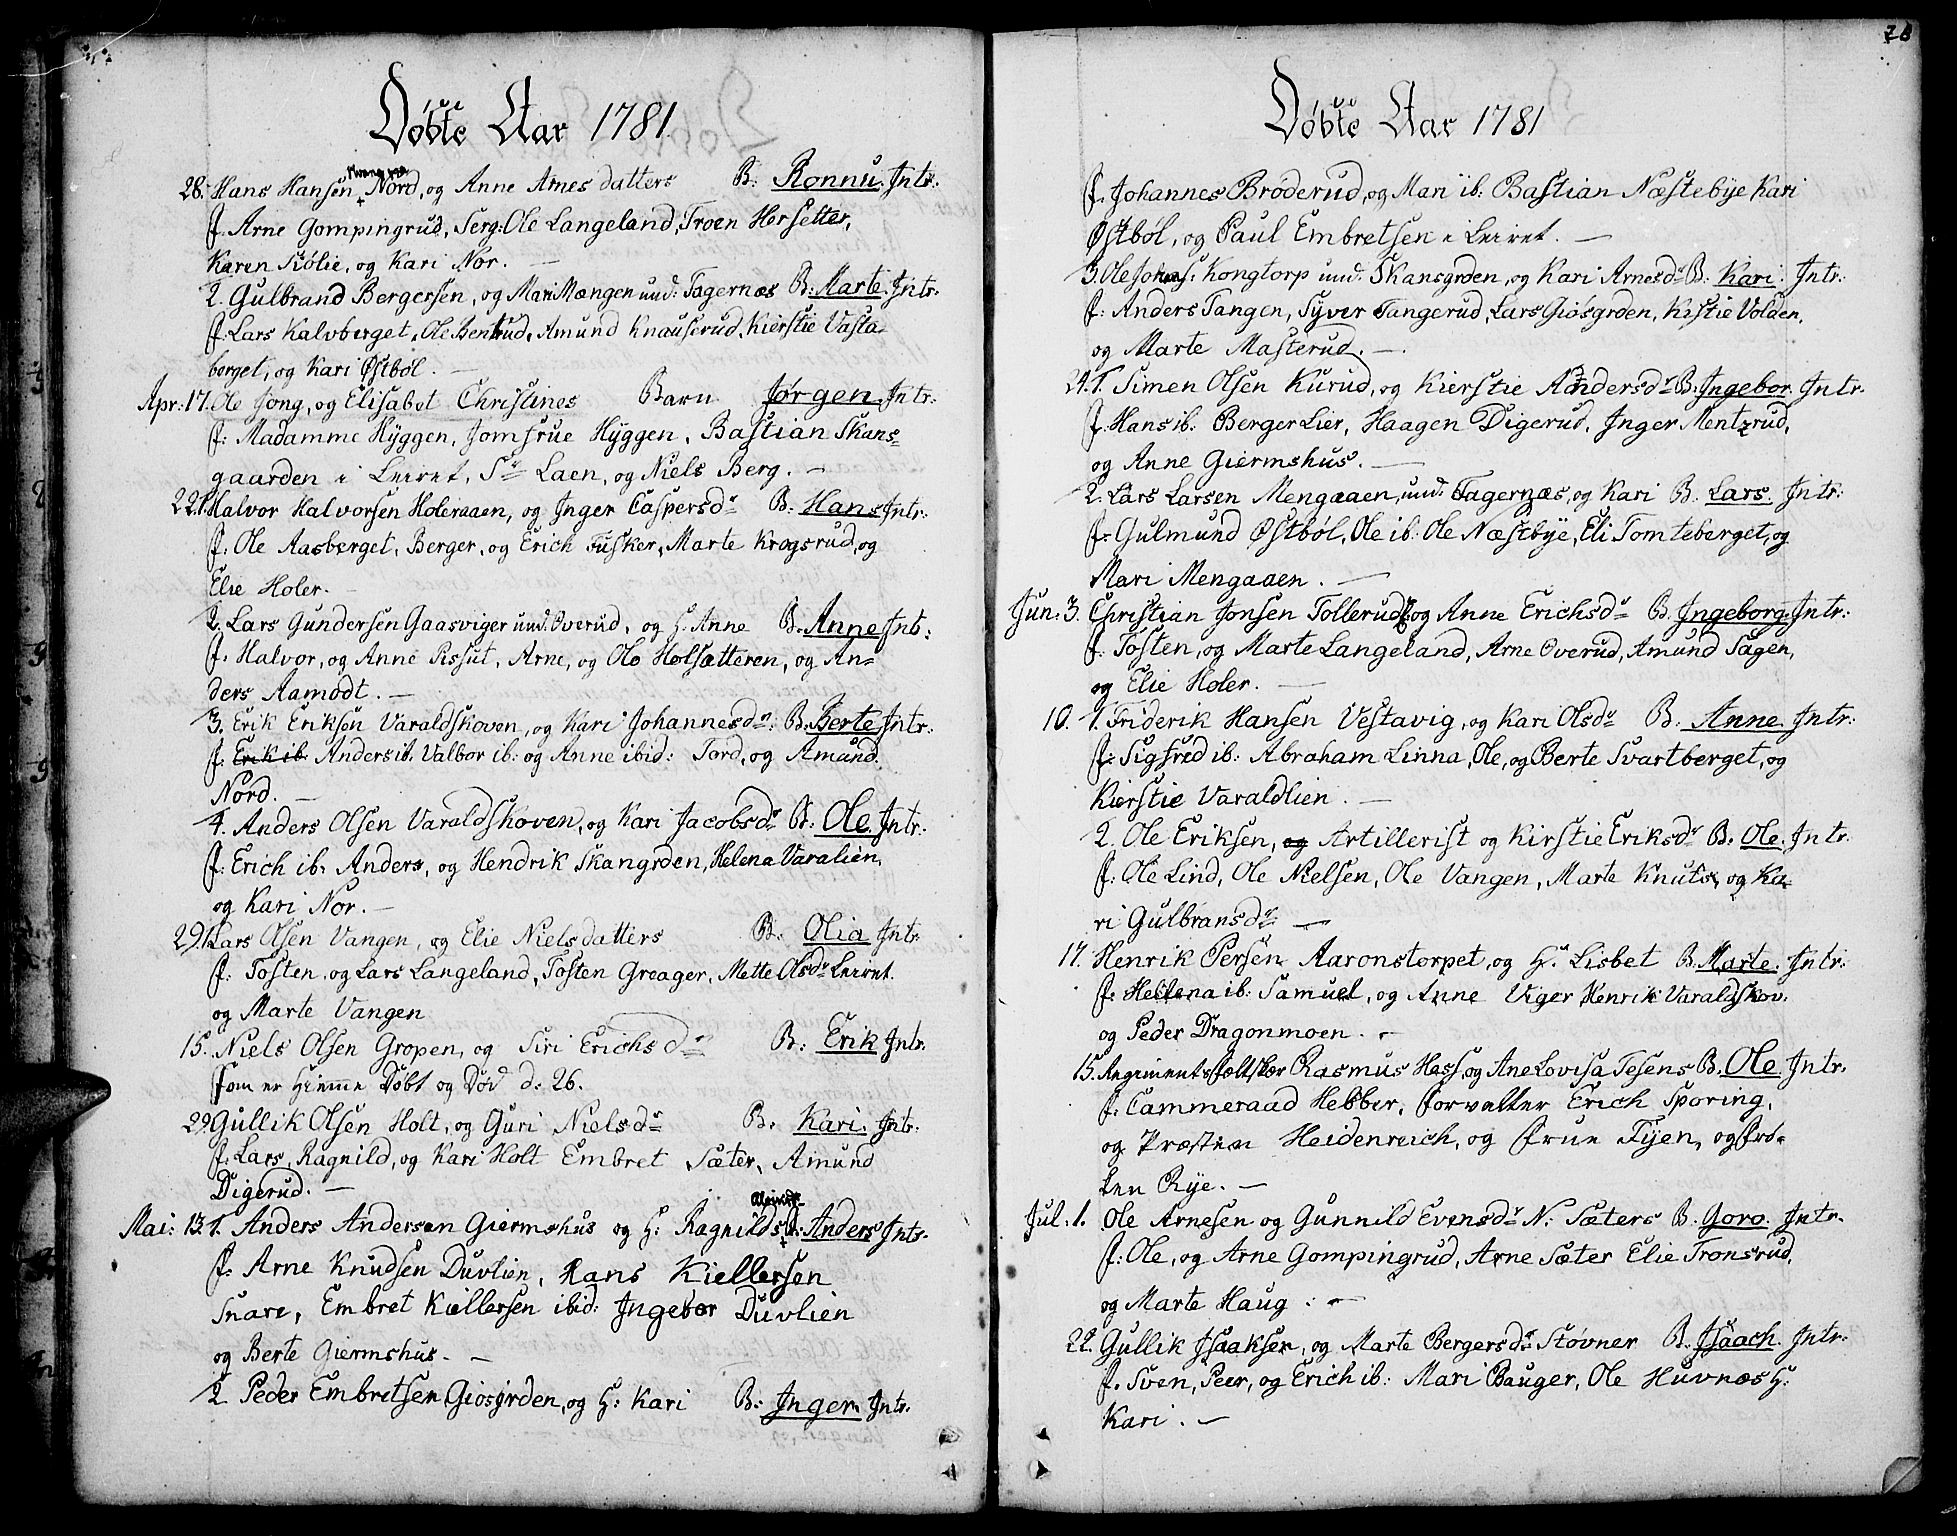 Døbte Aar 1781.
28. Hans Hansen Nord, og Anne Arnes datters B: Ronnu. Intr:
f. Arne Gompingrud, Serg: Ole Langeland, Troen Hersetter,
Karen Kiölie, og Kari Nor. —
2. Gulbrand Bergersen, og Mari Mængen und: Tagernæs B: Marte. Intr:
f: Lars Kalvberget, Ole Bentrud, Amund Knauserud, Kierstie Vasta-
berget, og Kari Østböl. —
Apr: 17. Ole Jong, og Elisabet Christines Barn Jørgen. Intr:
f: Madamme Hÿggen, Jomfrue Hÿggen, Bastian Skans=
gaarden i Leiret, Sr Laen, og Niels Berg. —
22. 1. Halvor Halvorsen Holeraaen, og Inger Caspersdr B. Hans Intr:
f. Ole Aasberget, Berger, og Erich Fusker, Marte Krogsrud, og
Elie Holer. —
2. Lars Gundersen Gaasviger und. Overud, og H: Anne B. Anne Intr:
f. Halvor, og Anne Pissut, Arne, og Ole Holsætteren, og An=
ders Aamodt. —
3. Erik Eriksen Varaldskoven, og Kari Johannesdr: B. Berte Intr:
f: Erik ib. Anders ib. Valbor ib: og Anne ibid: Tord, og Amund.
Nord. —
4. Anders Olsen Varaldskoven, og Kari Jacobsdr B: Ole. Intr:
f: Erich ib: Anders, og Hendrik Skangrden, Helena Varalien,
og Kari Nor. —
29. 1. Lars Olsen Vangen, og Elie Nielsdatters B. Olia Intr:
f: Tosten, og Lars Langeland, Tosten Greager, Mette Olsdr Leiret.
og Marte Vangen
15. Niels Olsen Gropen, og Siri Erichsdr B: Erik Intr.
som er Hiemme Döbt og Död d: 26.
29. Gullik Olsen Holt, og Guri Nielsdr B. Kari. Intr:
f. Lars, Ragnild, og Kari Holt Embret Sæter, Amund
Digerud. —
Mai: 13. 1. Anders Andersen Giermshus og H: Ragnilds B: Anders Intr.
f. Arne Knudsen Duvlien, Hans Kiellersen
Snare, Embret Kiellersen ibid: Ingebor Duvlien
og Berte Giermshus. —
2 Peder Embretsen Giosgrden, og H: Kari B: Inger. Intr.
78
Døbte Aar 1781
f. Johannes Broderud, og Mari ib: Bastian Næstebÿe Kari
Østböl, og Paul Embretsen i Leiret. —
3. Ole Johans: Kongtorp und. Skansgrden, og Kari Arnesdr B. Kari. Intr:
f: Anders Tangen, Syver Tangerud, Lars Giösgrden, Kistie Volden,
og Marte Masterud. —
24. 1. Simen Olsen Kurud, og Kierstie Andersdr B. Ingebor. Intr.
f. Hans ib: Berger Lier, Haagen Digerud, Inger Mentzrud,
og Anne Giermshus. —
2. Lars Larsen Mengaaen, und: Tagernæs, og Kari B. Lars. Intr:
f. Gulmund Østböl, Ole ib: Ole Næstbÿe, Eli Tomteberget, og
Mari Mengaaen. —
Jun: 3. Christian Jonsen Tollerud og Anne Erichsdr B. Ingeborg. Intr:
f: Tosten, og Marte Langeland, Arne Overud, Amund Tagen,
og Elie Holer. —
10. 1. Friderik Hansen Vestavig, og Kari Olsdr B. Anne. Intr:
f: Sigfred ib: Abraham Linna, Ole, og Berte Svartberget, og
Kierstie Varaldlien. —
2. Ole Eriksen, og Artillerist og Kirstie Eriksdr B. Ole. Intr.
f: Ole Lind, Ole Nielsen, Ole Vangen, Marte Knuts, og Ka-
ri Gulbransdr —
17. Henrik Persen Aaronstorpet, og H. Lisbet B. Marte. Intr:
f: Hellena ib: Samuel, og Anne Viger, Henrik Varaldskov.
og Peder Dragonmoen. —
15. Regimentsfeltskær Rasmus Hass, og Ane Lovisa Tesens B. Ole. Intr.
f. Cammeraad Hebber, forvalter Erich Sporing,
og Præsten Heidenreich, og frue Fijen, og frö-
ken Rye. —
Jul: 1. Ole Arnesen og Gunnild Evensdr N: Sæters B. Goro. Intr.
f: Ole, og Arne Gompingrud, Arne Sæter Elie Tronsrud,
og Marte Haug. —
22. Gullik Isaaksen, og Marte Bergersdr Stövner B. Isaach. Intr:
f. Sven, Peer, og Erich ib: Mari Bauger, Ole Huvnæs H:
Kari. —